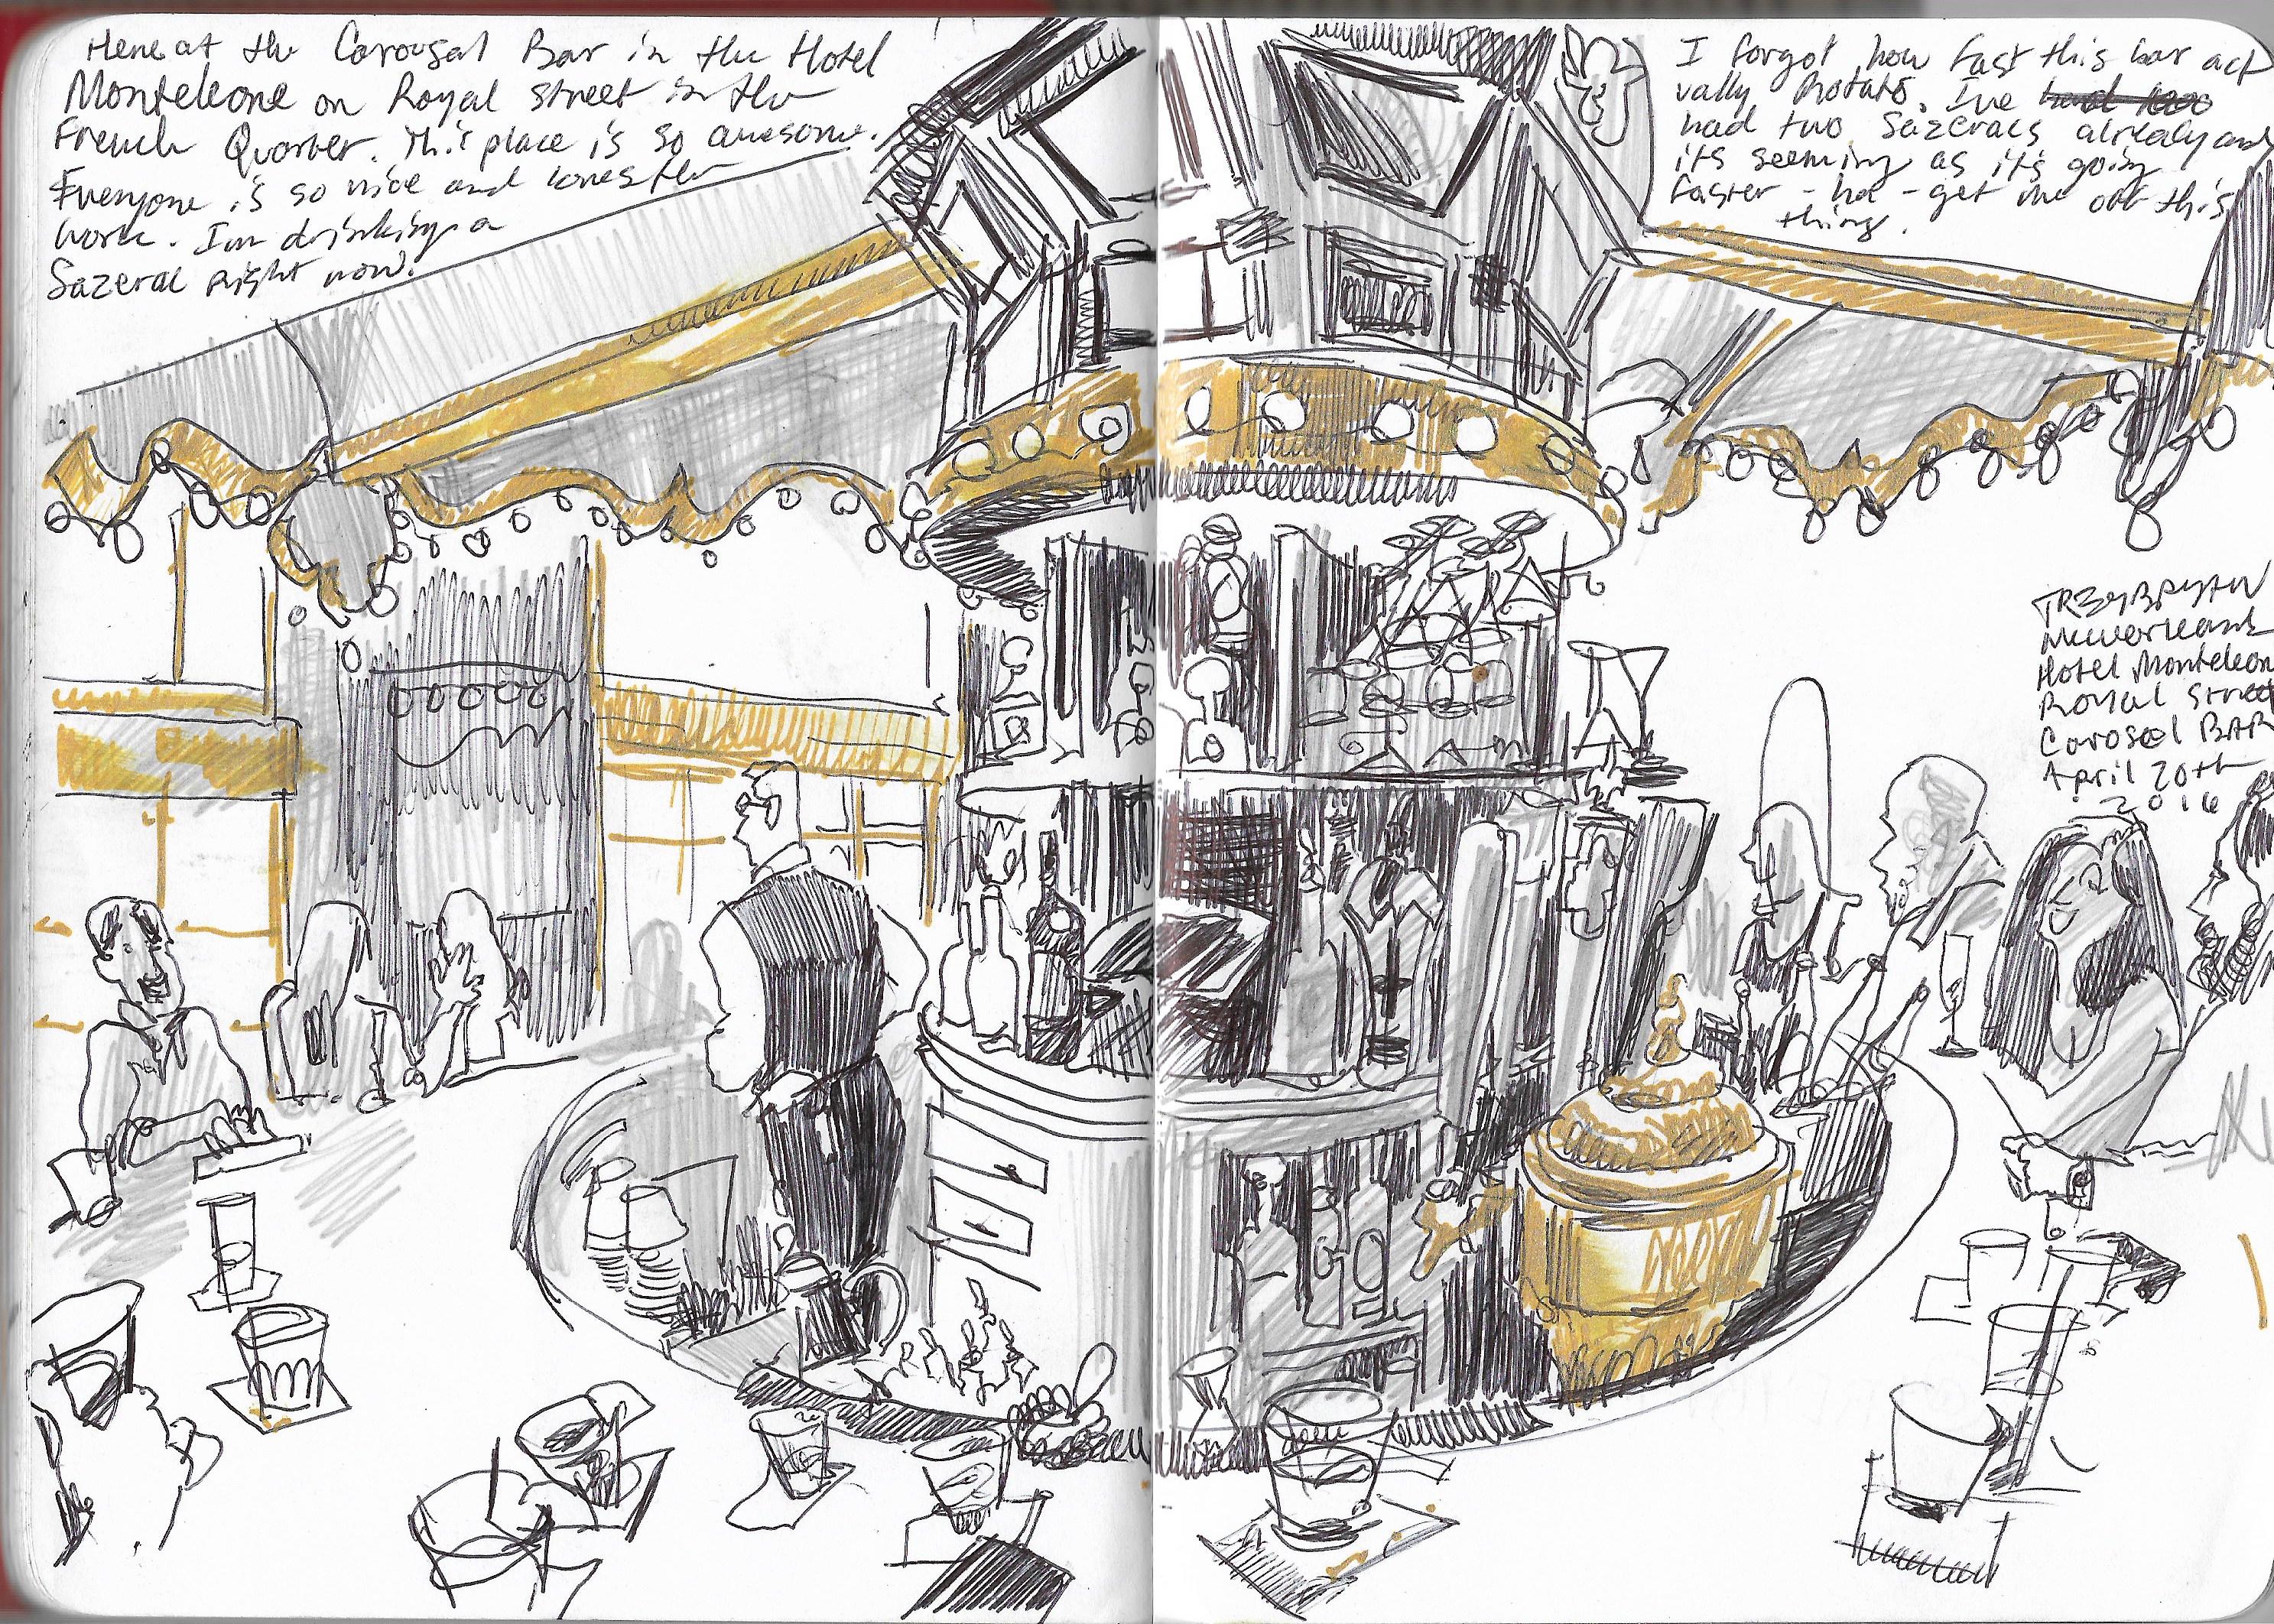 Here at the Carousal Bar in the Hotel
Monteleone on Royal Street in the
French Quarter. This place is so awesome.
Everyone is so nice and loves their
work. I'm drinking a
Sazerac right now.
I forgot how fast this bar act
ually rotats. I've had
had two Sazeracs already and
its seeming as it's going
faster - ha - get me off this
thing.
New Orleans
Hotel Monteleon
Royal Street
Carosel BAR
April 20th
2016